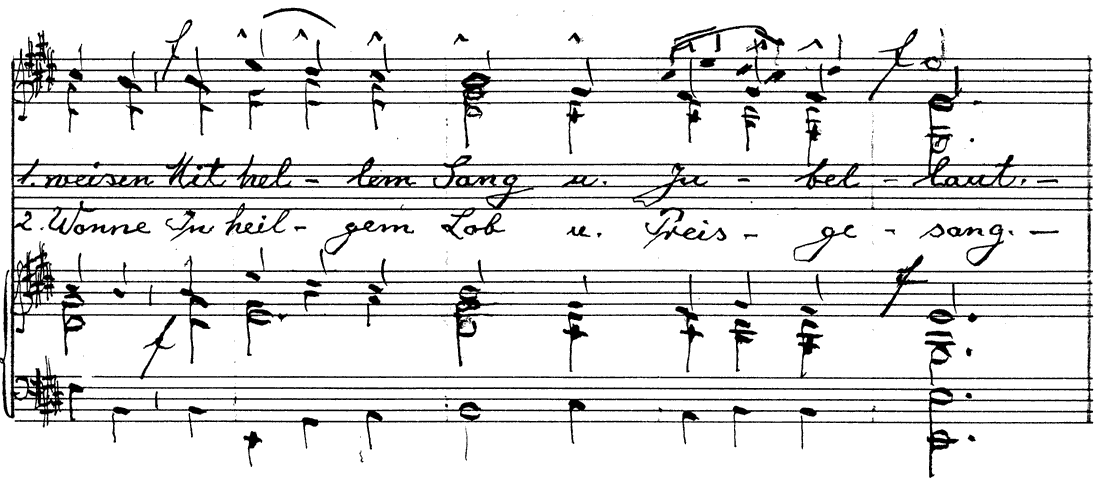 1. weisen Mit hel- lem Sang u. Ju - bel - laut. -
2. Wonne In heil- gem Lob u. Preis - ge - sang. -